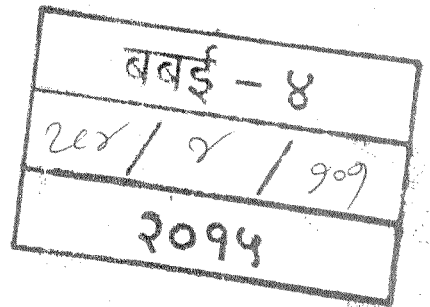 बबई - ४
/ ४ / १०१
२०१५